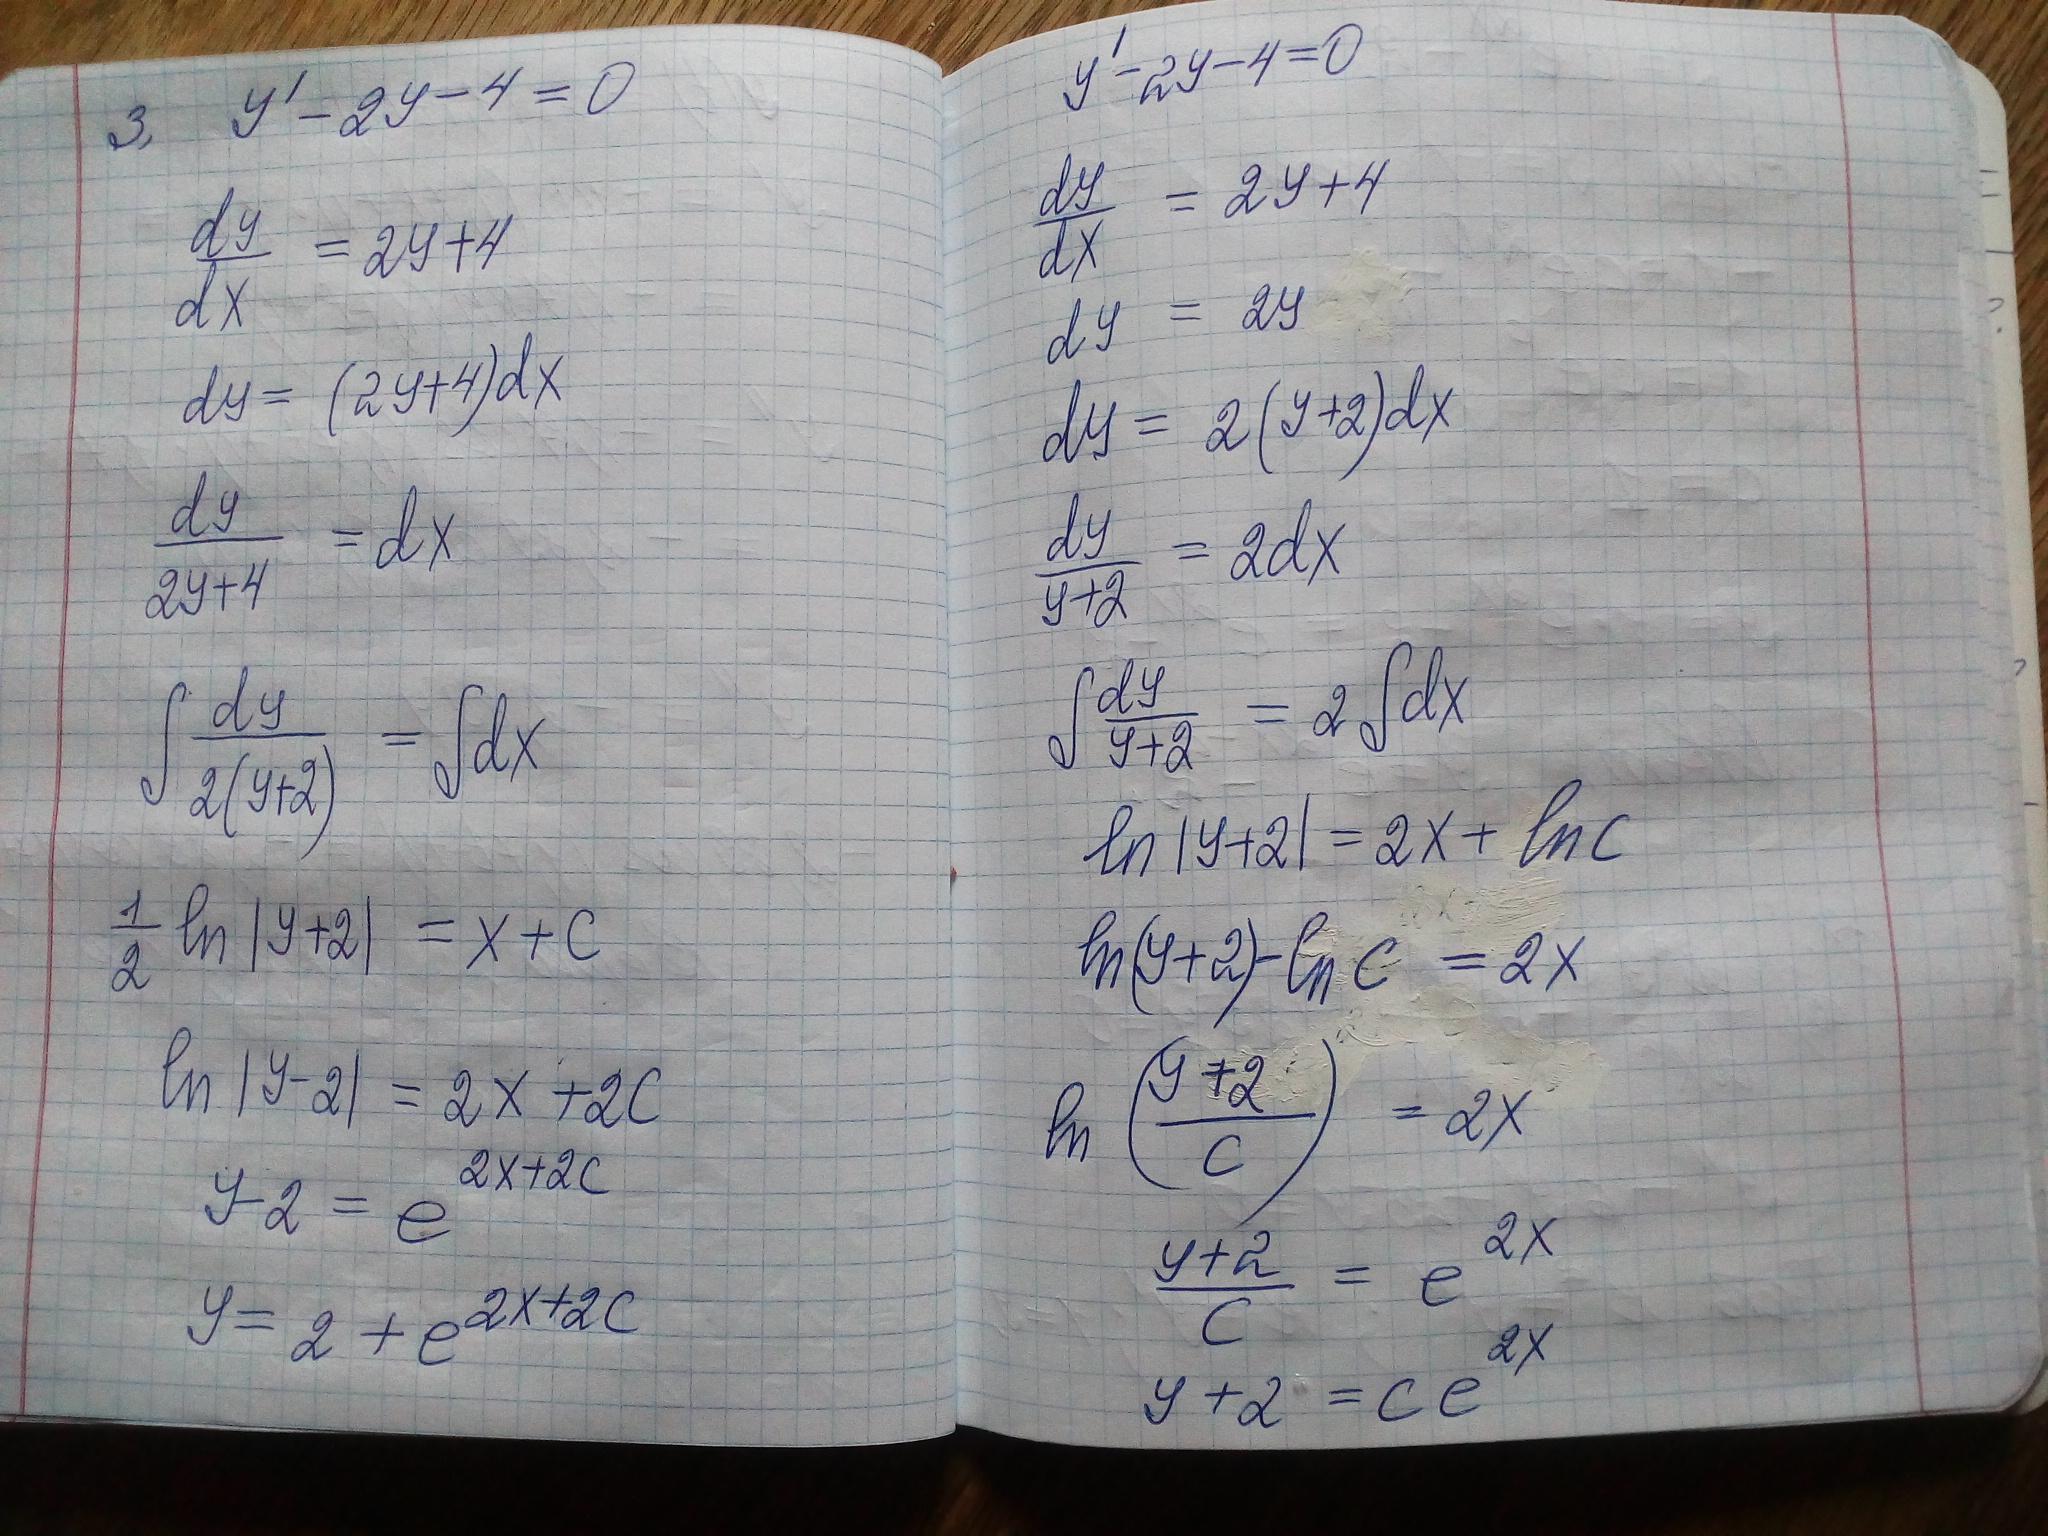 3. y' - 2y - 4 = 0
dy/dx = 2y + 4
dy = (2y+4)dx
dy/(2y+4) = dx
∫ dy/(2(y+2)) = ∫dx
1/2 ln |y+2| = x + c
ln |y-2| = 2x + 2c
y-2 = e^(2x+2c)
y = 2 + e^(2x+2c)
y' - 2y - 4 = 0
dy/dx = 2y + 4
dy = 2y
dy = 2(y+2)dx
dy/(y+2) = 2dx
∫ dy/(y+2) = 2∫dx
ln |y+2| = 2x + ln c
ln(y+2) - ln c = 2x
ln ((y+2)/c) = 2x
(y+2)/c = e^(2x)
y + 2 = c e^(2x)